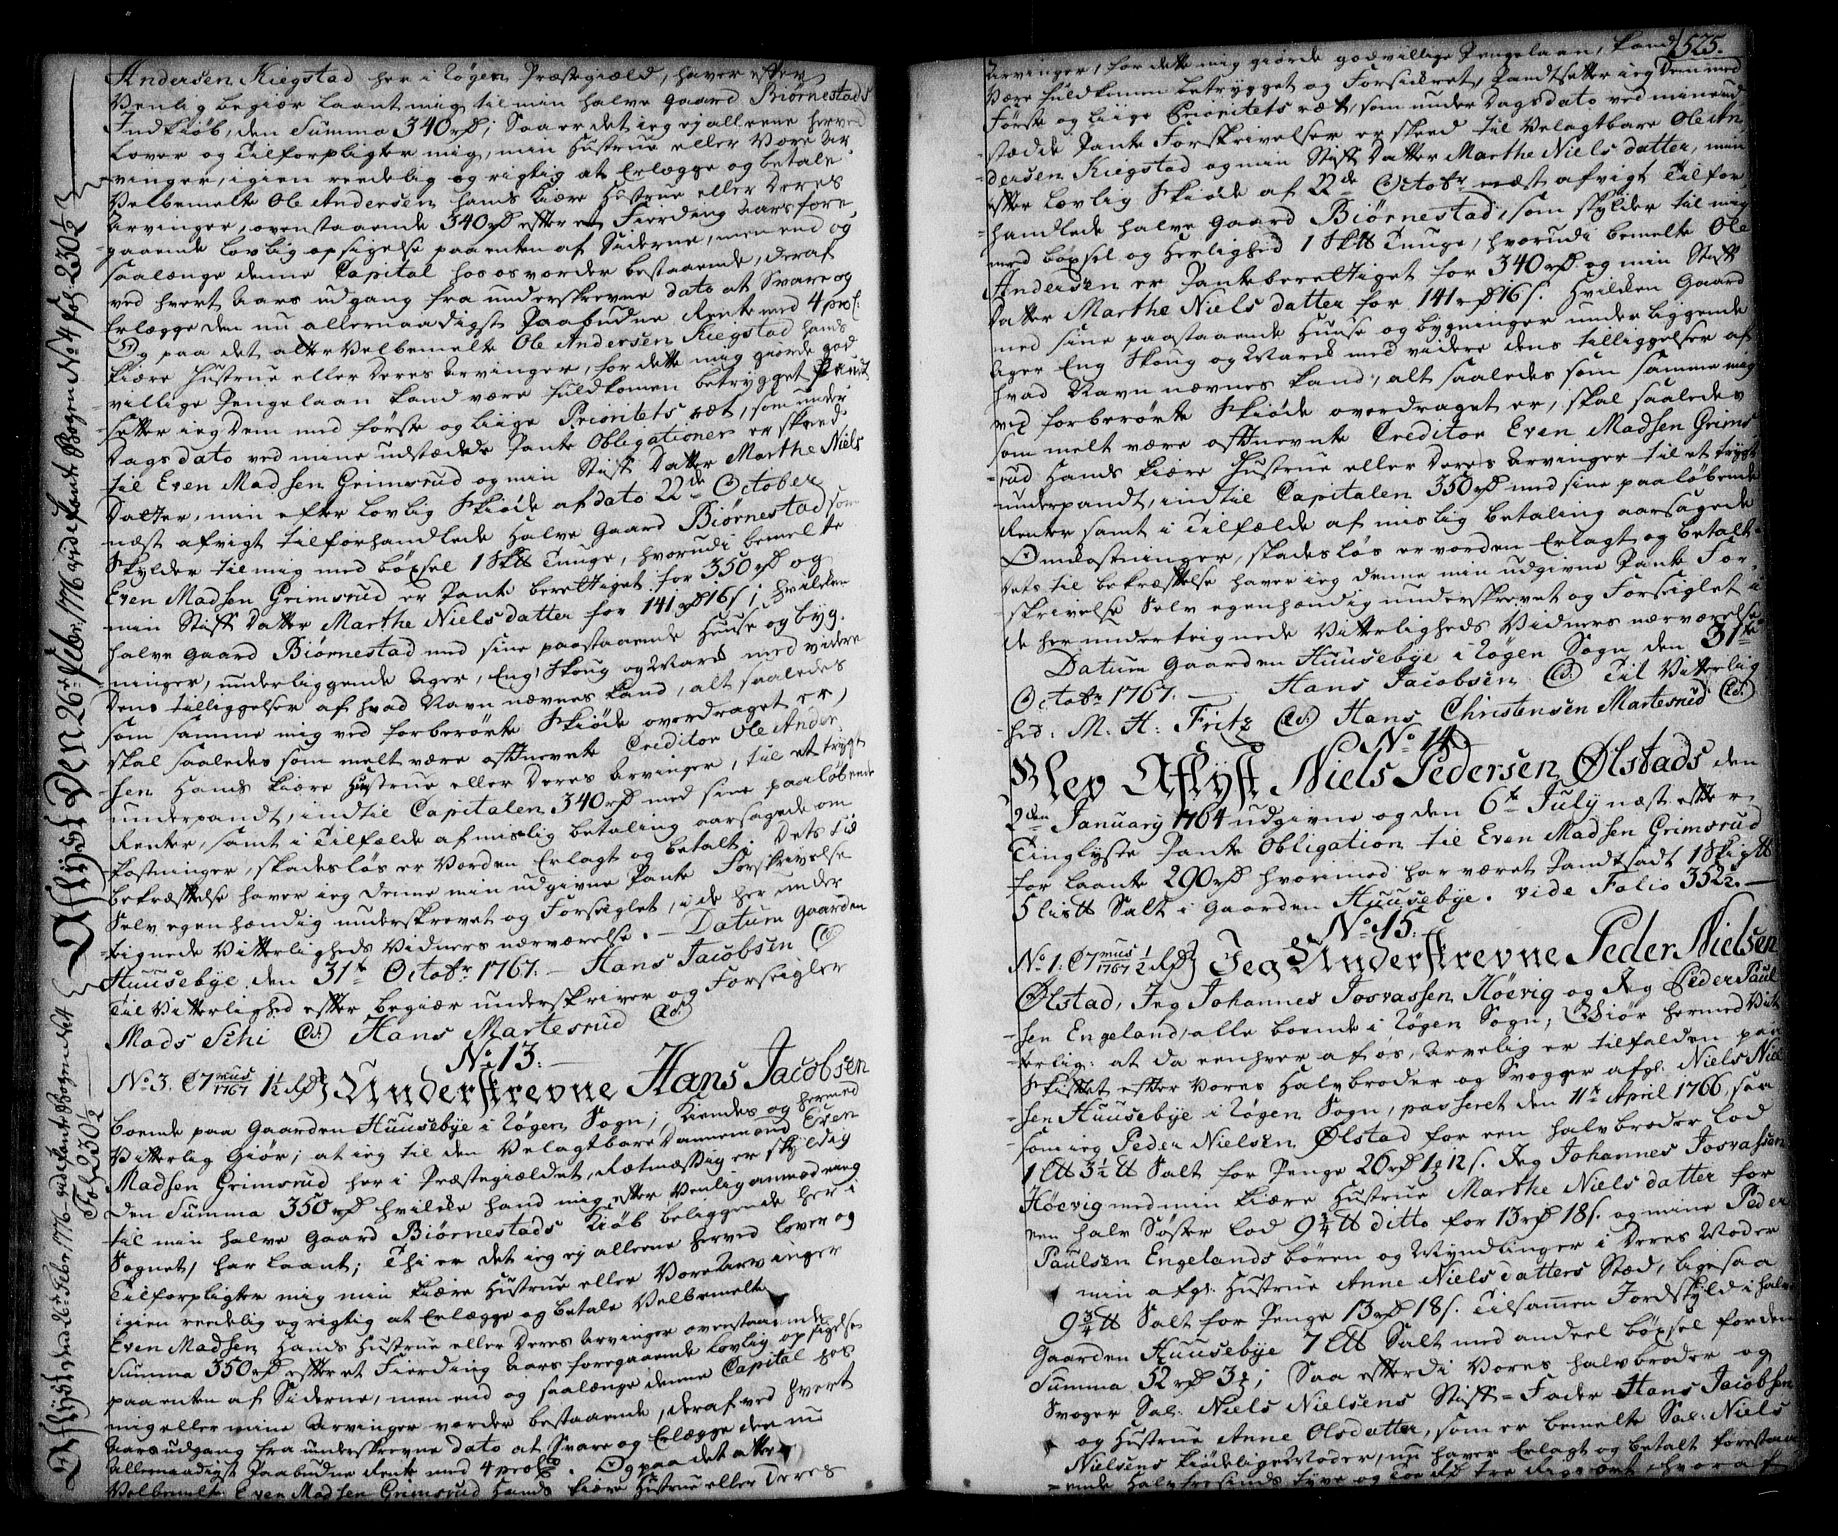 Andersen Kiegstad her i Røgen Præstegield, haver efter
Venlig begiær laant mig til min halve Gaard Biørnestads
Indkiøb, den Summa 340 rd; Saa er det ieg ej alleene herved
Lover og Tilforpligter mig, min Hustrue eller Vore Ar-
vinger, igien reedelig og rigtig at Erlægge og betale
Velbemelte Ole Andersen hans Kiære Hustrue eller Deres
Arvinger, ovenstaaende 340 rd efter et Fierding Aars fore-
gaaende Lovlig opsigelse paa enten af Siderne, men end og
saalænge denne Capital hos os vorder bestaaende, deraf
ved hvert Aars udgang fra underskrevne dato at Svare og
Erlægge den nu allernaadigst Paabudne Rente med 4 proC:
Og paa det at er Velbemelte Ole Andersen Kiegstad hans
kiære Hustrue eller Deres Arvinger, for dette mig giorde god-
villige Pengelaan kand være fuldkomen betrygget Pandt
sætter ieg Dem med første og liige Prioritets ræt, som under
Dags dato ved mine udstædde Pante Obligationer er skeed
til Even Madsen Grimsrud og min Stiff Datter Marthe Niels
Datter, min efter Lovlig Skiøde af dato 22de October
næst afvigt tilforhandlede halve Gaard Biørnestad som
Skylder til mig med bøxsel 1 Sktt Tunge, hvorudi bemelte
Even Madsen Grimsrud er Pante berettiget for 350 rd og
min Stiff Datter Marthe Nielsdatter for 141 rd 16 s; hvilken
halve Gaard Biørnestad med sine paastaaende Huuse og byg-
ninger, underliggende Ager, Eng, Skoug og Mark med videre
Dens tilliggelser af hvad Navn nævnes kand, alt saaledes
som samme mig ved forberørte Skiøde overdraget er,
skal saaledes som melt være oftnevnte Creditor Ole Ander-
sen Hands kiære Hustrue eller Deres Arvinger, til et trygt
underpandt, indtil Capitalen 340 rd med sine paaløbende
Renter, samt i Tilfælde af mislig betaling aarsagede om-
kostninger, skadesløs er vorden Erlagt og betalt. Dets til
bekræftelse haver ieg denne min udgivne Pante Forskrivelse
Selv egenhændig underskrevet og Forseiglet, i de her under
tegnede Vitterligheds Vidners nærværelse. – Datum Gaarden
Huusebye, den 31te Octobr 1767. – Hans Jacobsen (LS)
Til Vitterlighed efter begiær underskriver og Forseigler
Mads Schi (LS) Hans Martesrud (LS)
No 13.
No. 3. C7mus 1767 1½ rd} Underskrevne Hans Jacobsen
boende paa Gaarden Huusebye i Røgen Sogn, Kiendes og hermed
Vitterlig Giør; at ieg til den Velagtbare Dannemand Even
Madsen Grimsrud her i Præstegieldet, Rætmæssig er skyldig
den Summa 350 rd hvilke hand mig efter Venlig anmodning
til min halve Gaard Biørnestads Kiøb beliggende her i
Sognet, har laant; Thi er det ieg ej alleene herved Lover og
Tilforpligter mig min kiære Hustrue eller Vore Arvinger
igien reedelig og rigtig at Erlægge og betale Velbemelte
Even Madsen Hands Hustrue eller Deres Arvinger ovenstaaende
Summa 350 rd efter et Fierding Aars foregaaende Lovlig opsigelse
paa enten af Siderne, men end og saalænge denne Capital hos
mig eller mine Arvinger vorder bestaaende, deraf ved hvert
Aars udgang fra underskrevne dato at Svare og Erlægge den nu
Allernaadigst Paabudne Rente med 4 proC. Og paa det at er
Velbemelte Even Madsen Grimsrud Hands kiære Hustrue eller Deres
Aflyst den 26de Febr: 1776 vide Pante Bogen No 4 Fol: 230½
Aflyst den 26de Febr 1776 – vide Pante Bogen No 4
Fol 230½
525.
Arvinger, for dette mig giorde godvillige Pengelaan, kand
Være fuldkomen betrygget og Forsicret, Pandtsetter ieg Dem med
Første og liige Prioritets ræt, som under Dags dato ved mine ud-
stædde Pante Forskrivelser er skeed til Velagtbare Ole An-
dersen Kiegstad og min Stiff Datter Marthe Nielsdatter, min
efter Lovlig Skiøde af 22de Octobr næst afvigt Tilfor-
handlede halve Gaard Biørnestad, som skylder til mig
med bøxsel og Herlighed 1 Sktt Tunge, hvorudi bemelte Ole
Andersen er Panteberettiget for 340 rd og min Stiff
Datter Marthe Nielsdatter for 141 rd 16 s. Hvilken Gaard
med sine paastaaende Huuse og bygninger underliggende
Ager Eng Skoug og Mark med videre dens tilliggelser af
hvad Navn nævnes kand, alt saaledes som samme mig
ved forberørte Skiøde overdraget er, skal saaledes
som melt være oftnevnte Creditor Even Madsen Grims-
rud Hands kiære Hustrue eller Deres Arvinger til et trygt
underpandt, indtil Capitalen 350 rd med sine paaløbende
Renter samt i Tilfælde af mislig betaling aarsagede
Omkostninger, skadesløs er vorden Erlagt og betalt.
Dets til bekræftelse haver ieg denne min udgivne Pante For-
skrivelse Selv egenhændig underskrevet og Forseiglet i
de her undertegnede Vitterligheds Vidners nærværelse
Datum Gaarden Huusebye i Røgen Sogn den 31te
Octobr 1767. – Hans Jacobsen (LS) Til Vitterlig-
hed: M. H: Fritz (LS) Hans Christensen Martesrud (LS)
No 14
Blev Aflyst Niels Pedersen Ølstads den
2den January 1764 udgivne og den 6te July næst efter
Tinglyste Pante Obligation til Even Madsen Grimsrud
for laante 290 rd hvorimed har været Pandtsadt 1 Skitt
5 litt Salt i Gaarden Huusebye. vide Folio 352. –
No 15.
No. 1: C7mus 1767 ½ rd} Jeg Underskrevne Peder Nielsen
Ølstad, Jeg Johannes Josvassen Høevig og Jeg Peder Paul-
sen Engeland, alle boende i Røgen Sogn; Giør hermed Vit-
terlig: at da eenhver af os, Arvelig er tilfalden paa
Skiftet efter Vores Halvbroder og Svoger afg: Niels Niel-
sen Huusebye i Røgen Sogn, passeret den 11te April 1766, saa
som ieg Peder Nielsen Ølstad for een halvbroder Lod
1 Ltt 3½ tt Salt for Penge 26 rd 1 12 s. Jeg Johannes Josvassen
Høevig med min kiære Hustrue Marthe Nielsdatter for
een halv Søster Lod 9¾ tt ditto for 13 rd 18 s. og mine Peder
Paulsen Engelands børen og Myndlinger i Deres Moder
min afg: Hustrue Anne Nielsdatters Stæd, ligesaa
9¾ tt Salt for Penge 13 rd 18 s. Tilsamen Jordskyld i halve
Gaarden Huusebye 7 Ltt Salt med andeel bøxsel for den
Summa 52 rd 3; Saa efterdi Vores halvbroder og
Svoger Sal: Niels Nielsens Stiff-Fader Hans Jacobsen
og Hustrue Anne Olsdatter, som er bemelte Sal: Niels
Nielsens kiødelige Moder, nu haver Erlagt og betalt forestaa-
ende Halvtresinds tyve og Toe rd tre Rigsort, hvoraf